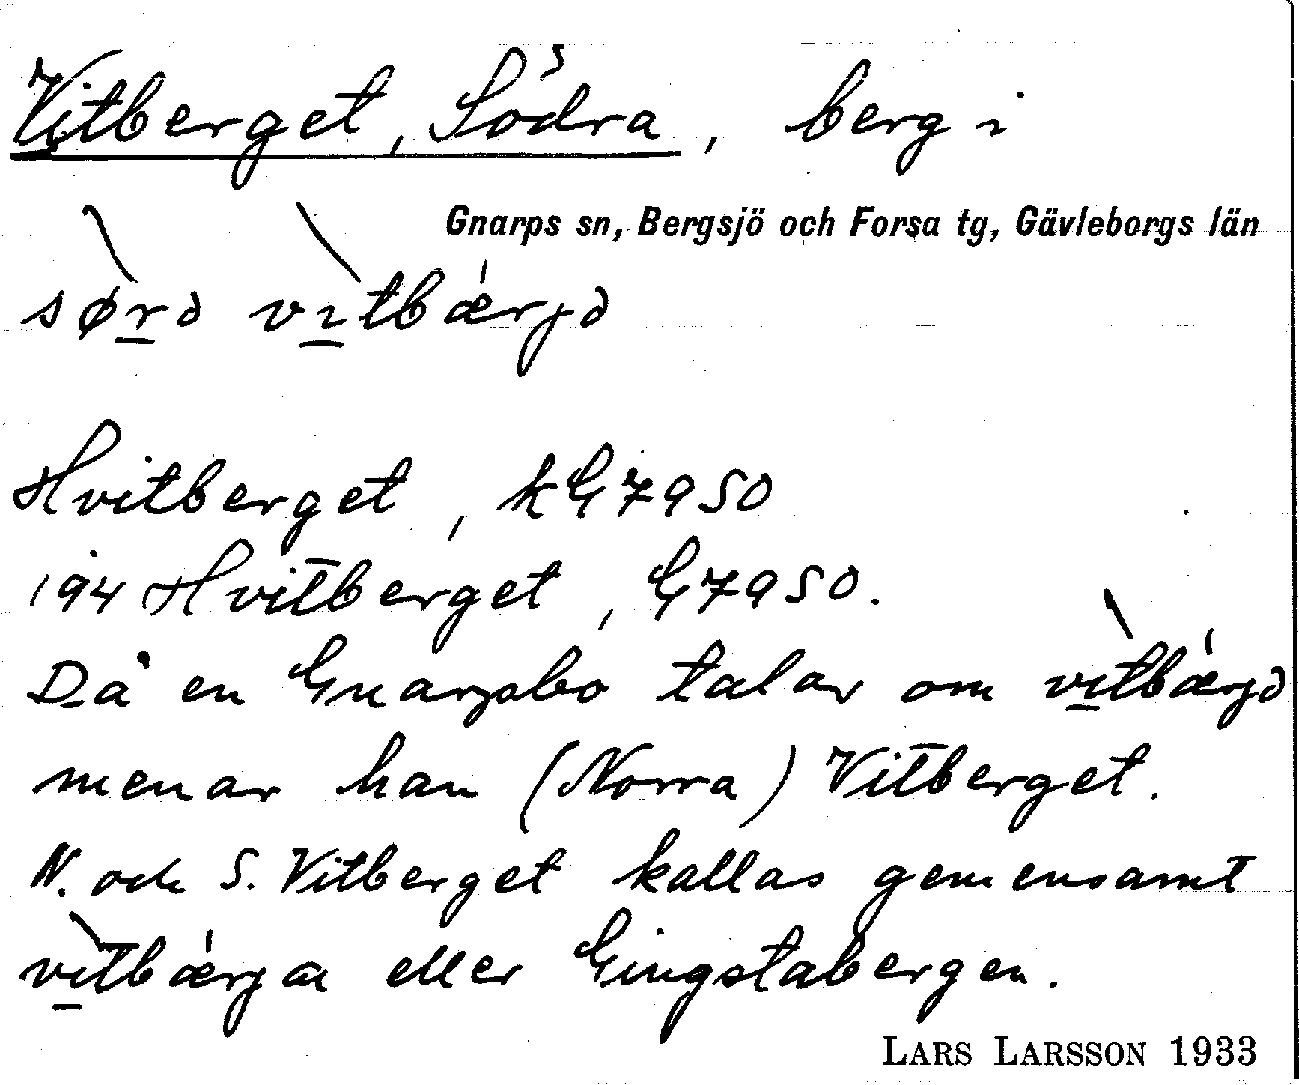 Vitberget, Södra, berg i
Gnarps sn, Bergsjö och Forsa tg, Gävleborgs län
sørə vɪtbærjə
Hvitberget, kG7950
194 Hvitberget, G7950.
Då en Gnarpsbo talar om vɪtbærjə
menar han (Norra) Vitberget.
N. och S. Vitberget kallas gemensamt
vɪtbærja eller Gingstabergen.
LARS LARSSON 1933